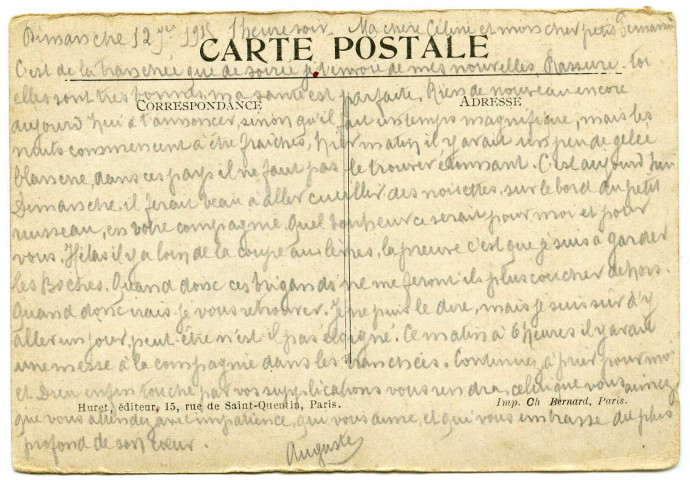 Dimanche 12 7re 1915 1 heure soir. Ma chère Céline et mon cher petit Fernand
CARTE POSTALE
C'est de la tranchée que de soirée je t'envoie de mes nouvelles. Rassure-toi
elles sont très bonnes, ma santé est parfaite. Rien de nouveau encore
CORRESPONDANCE ADRESSE
aujourd'hui à t'annoncer, sinon qu'il fait un temps magnifique, mais les
nuits commencent à être fraîches, hier matin il y avait un peu de gelée
blanche, dans ces pays il ne faut pas le trouver étonnant. C'est aujourd'hui
Dimanche, il ferait beau à aller cueiller des noisettes, sur le bord du petit
ruisseau, en votre compagnie. Quel bonheur ce serait pour moi et pour
vous. Hélas il y a loin de la coupe aux lèvres, la preuve c'est que je suis à garder
les Boches. Quand donc ces brigands ne me feront-ils plus coucher dehors.
Quand donc irais-je vous retrouver. Je ne puis le dire, mais je suis sûr d'y
aller un jour, peut-être n'est-il pas éloigné. Ce matin à 6 heures il y avait
une messe à la compagnie dans les tranchées. Continuez à prier pour moi
et Dieu enfin touché par vos supplications vous rendra, celui que vous aimez
Huret, éditeur, 15, rue de Saint-Quentin, Paris. Imp. Ch Bernard, Paris.
que vous attendez avec impatience, qui vous aime, et qui vous embrasse du plus
profond de son cœur. Auguste